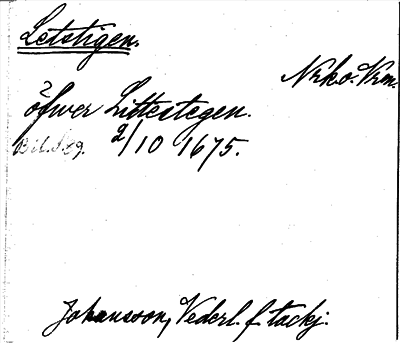 Letstigen.
Nrko. Vrm.
2
öfwer Littestegen.
Bil. Seg. 2/10 1675.
Johansson, Vederl. f. tackj.